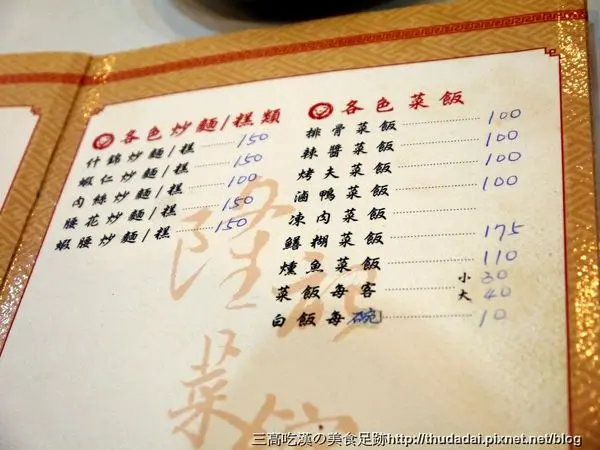 各色炒麵/糕類
什錦炒麵/糕 150
蝦仁炒麵/糕 150
肉絲炒麵/糕 100
腰花炒麵/糕 150
蝦腰炒麵/糕 150
各色菜飯
排骨菜飯 100
辣醬菜飯 100
烤夫菜飯 100
滷鴨菜飯 100
凍肉菜飯
鱔糊菜飯 175
燻魚菜飯 110
菜飯每客 小 30
大 40
白飯每碗 10
隆記
菜飯
三高吃漢の美食足跡http://thudadai.pixnet.net/blog